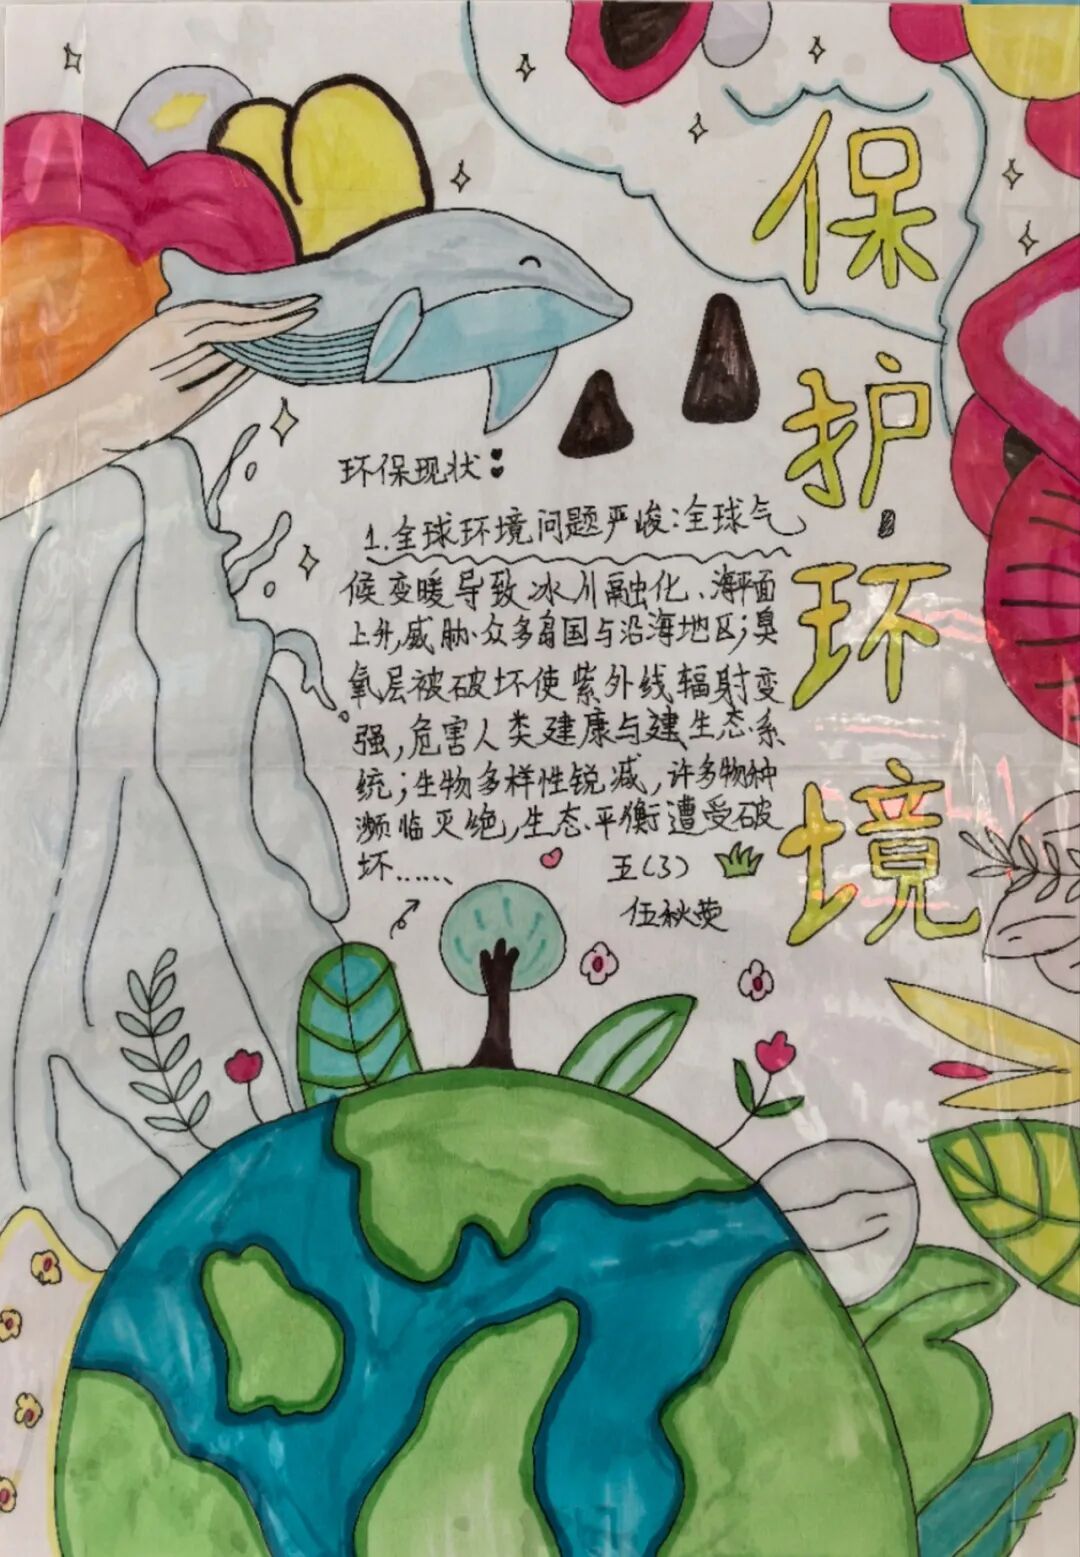 保护环境
环保现状:
1.全球环境问题严峻:全球气
候变暖导致冰川融化、海平面
上升,威胁众多岛国与沿海地区;臭
氧层被破坏使紫外线辐射变
强,危害人类建康与建生态系
统;生物多样性锐减,许多物种
濒临灭绝,生态平衡遭受破
坏……
五(3)
伍秋荧